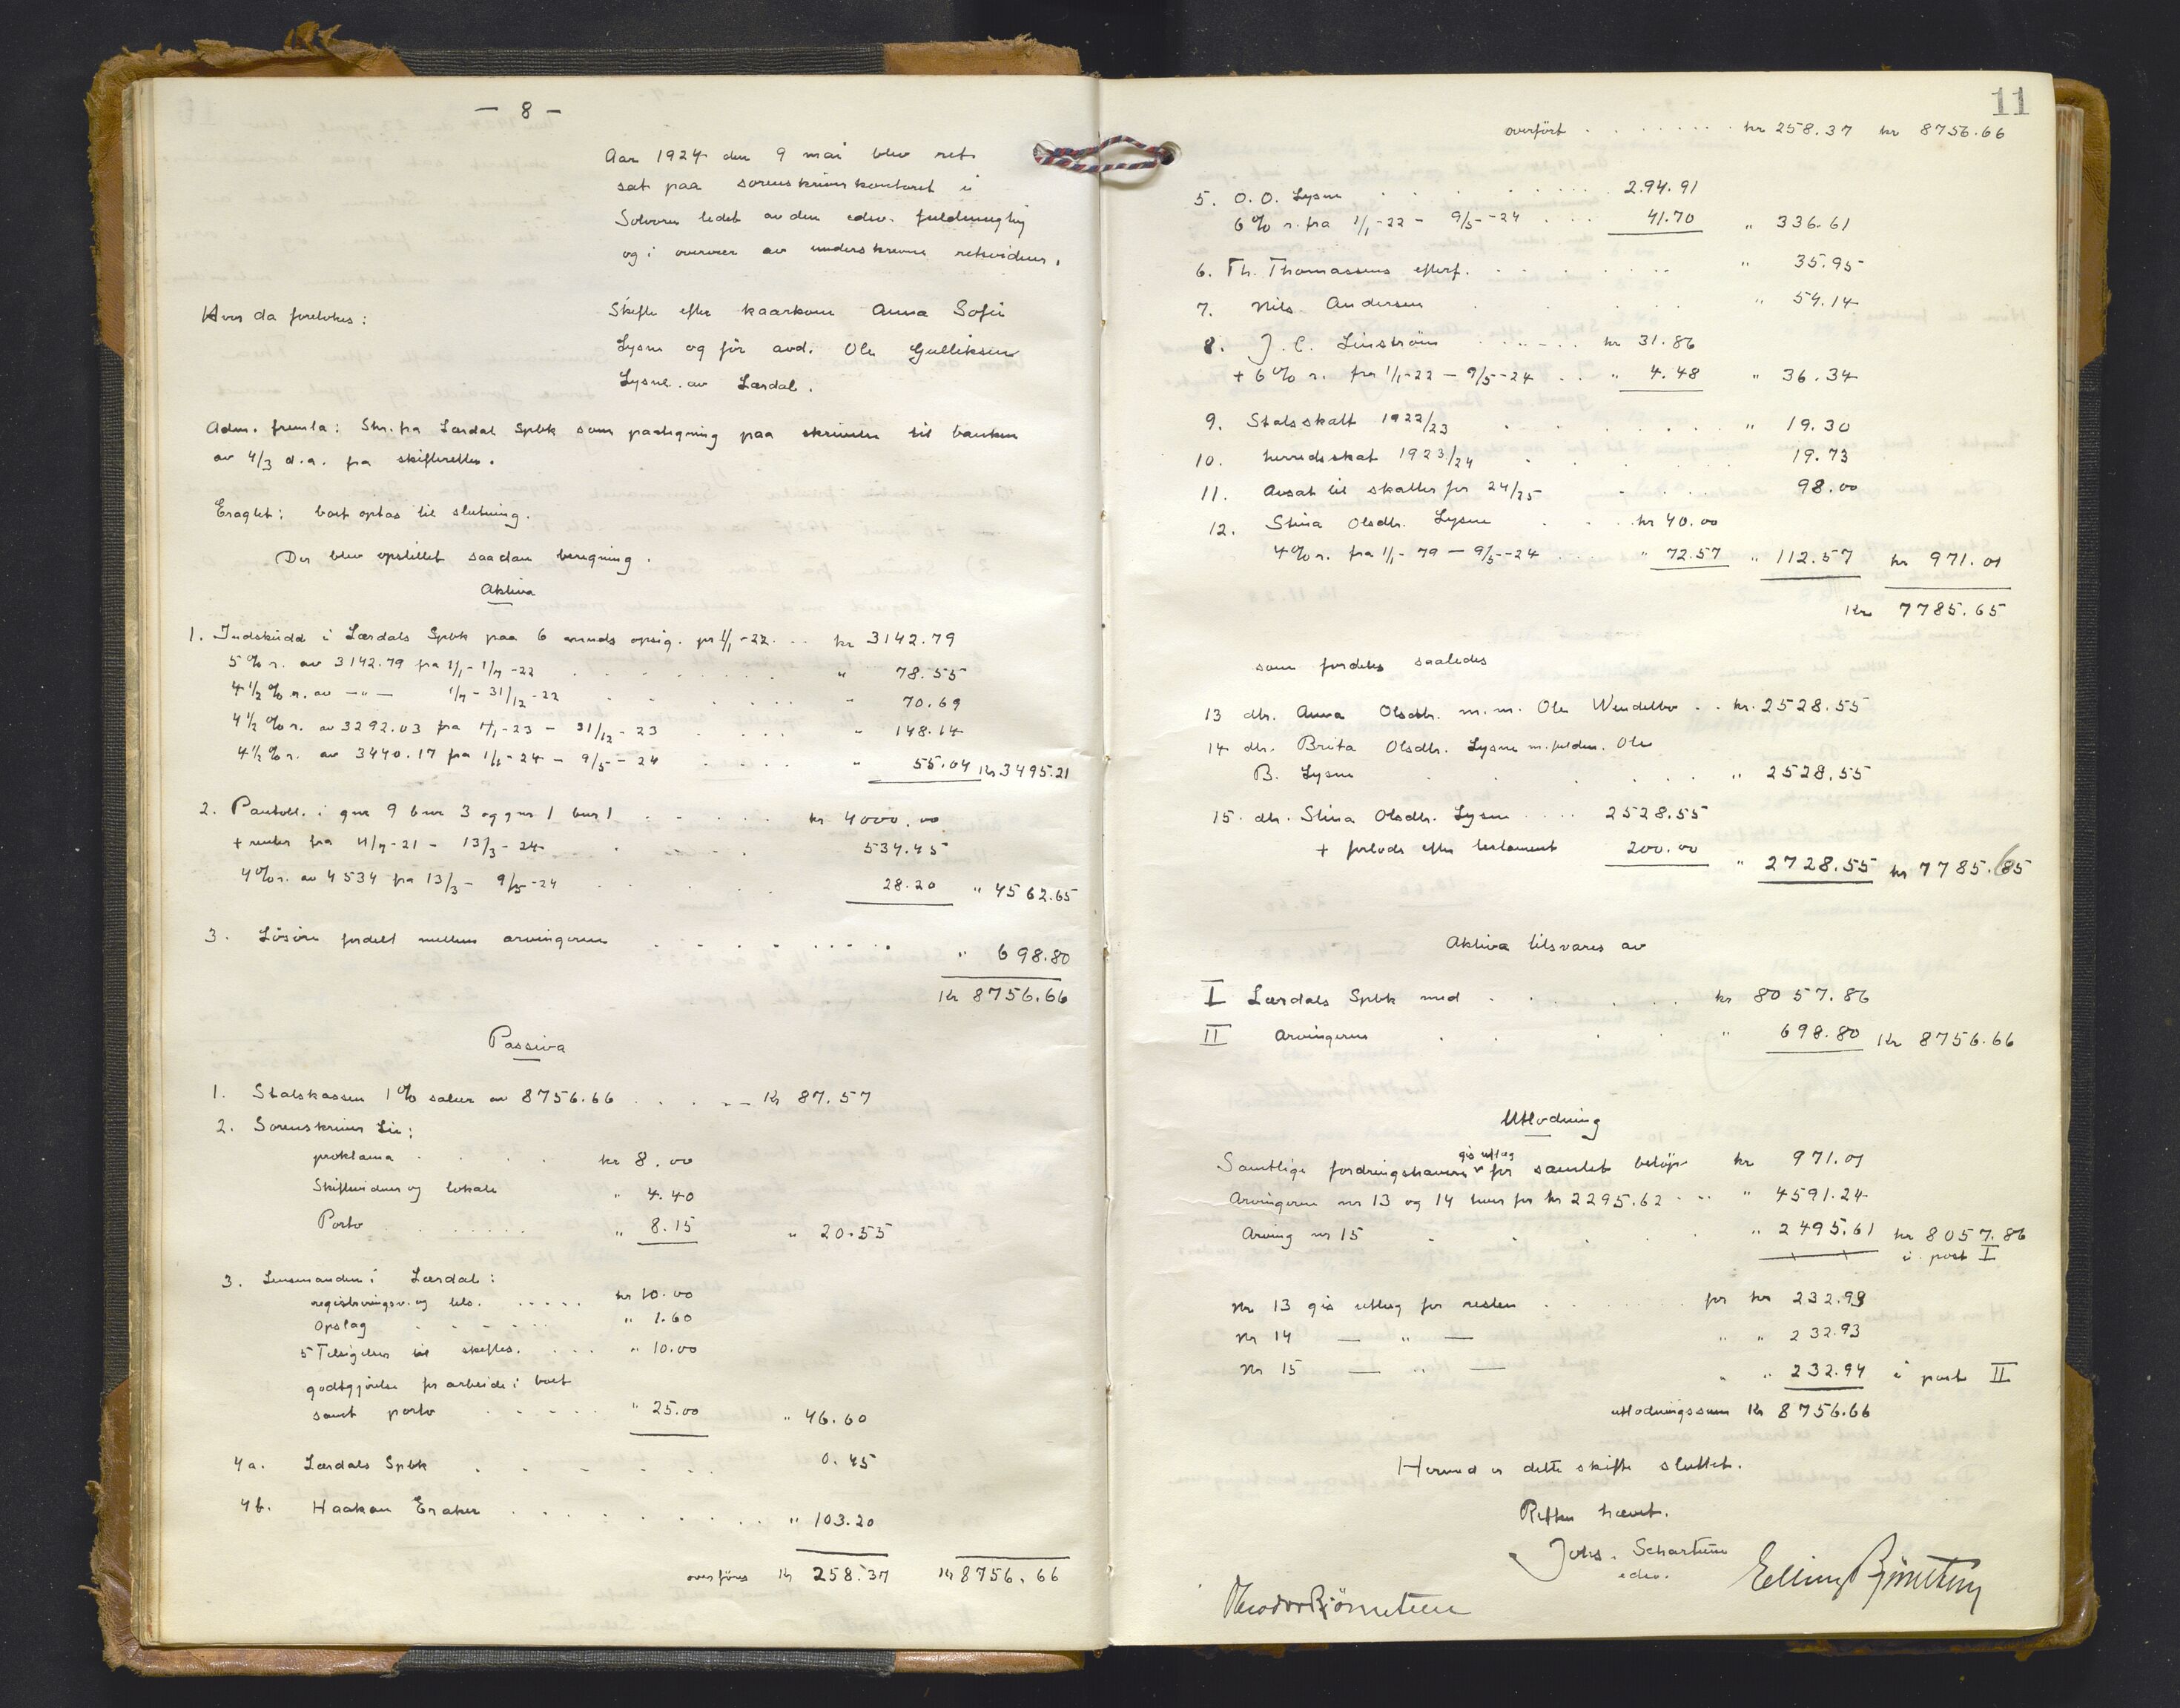 — 8 —
Aar 1924 den 9 mai blev ret
sat paa sorenskriverkontoret i
Solvorn ledet av den edsv. fuldmegtig
og i overvær av underskrevne retsvidner.
Hvor da foretokes:
Skifte efter kaarkone Anna Sofie
Lysne og før avd. Ole Gulliksen
Lysne av Lærdal.
Adm. fremla: Skr. fra Lærdal Spbk som paategning paa skrivelse til banken
av 4/3 d.a. fra skifteretten.
Eragtet: boet optas til slutning.
Der blev opstillet saadan beregning.
Aktiva
1. Indskudd i Lærdals Spbk paa 6 mnds opsig. pr 1/1-22 . . kr 3142.79
5 % r. av 3142.79 fra 1/1 - 1/7 -22 . . . . . . . " 78.55
4 1/2 % r. av —"— 1/7 - 31/12 -22 . . . . " 70.69
4 1/2 % r. av 3292.03 fra 1/1-23 - 31/12 - 23 . . . . " 148.14
4 1/2 % r. av 3440.17 fra 1/1-24 - 9/5 - 24 . . . . " 55.04 Kr 3495.21
2. Pantobl. i gnr 9 bnr 3 og gnr 1 bnr 1 . . . . . kr 4000.00
+ renter fra 11/7-21 - 13/3-24 . . 534.45
4 % r. av 4534 fra 13/3 - 9/5-24 . . . . 28.20 " 4562.65
3. Løsøre fordelt mellem arvingerne . . . . . . . . " 698.80
Kr 8756.66
Passiva
1. Statskassen 1 % salær av 8756.66 . . . . Kr 87.57
2. Sorenskriver Lie:
proklama . . . . kr 8.00
Skiftevidner og lokale " 4.40
Porto . . . . . . " 8.15 " 20.55
3. Lensmanden i Lærdal:
registreringsv. og tils. . . . . . kr 10.00
Opslag . . . . . . " 1.60
5 Tilsigelser til skiftes. . . . " 10.00
godtgjørelse for arbeide i boet
samt porto . . . . . " 25.00 " 46.60
4a. Lærdals Spbk . . . . . . 0.45
4b. Haakon Eraker . . . . . . . . . " 103.20
overføres Kr 258.37 Kr 8756.66
11
overført . . . . . . . kr 258.37 kr 8756.66
5. O. O. Lysne . . . . . . . . 294.91
6 % r. fra 1/1-22 - 9/5-24 . . . 41.70 " 336.61
6. Th. Thomassens efterf. . . . . . . " 35.95
7. Nils Andersen . . . . . " 54.14
8. J. C. Linström . . . . . kr 31.86
+ 6 % r. fra 1/1-22 — 9/5-24 . . " 4.48 " 36.34
9. Statsskatt 1922/23 . . . . . . . . " 19.30
10. herredsskat 1923/24 . . . . . 19.73
11. Avsat til skatter for 24/25 . . . . 98.00
12. Stina Olsdtr. Lysne . . . kr 40.00
4 % r. fra 1/1-79 — 9/5-24 . . . " 72.57 " 112.57 kr 971.01
Kr 7785.65
som fordeles saaledes
13 dtr. Anna Olsdtr. m.m. Ole Wendelbo . . kr. 2528.55
14 dtr. Brita Olsdtr. Lysne m. fuldm. Ole
B. Lysne . . . . . . " 2528.55
15. dtr. Stina Olsdtr. Lysne . . . . 2528.55
+ forlods efter testament 200.00 " 2728.55 kr 7785.65
Aktiva tilsvares av
I Lærdals Spbk med . . . . . . kr 8057.86
II Arvingerne . . . . . " 698.80 Kr 8756.66
Utlodning
Samtlige fordringshavere gis utlæg for samlet beløp kr 971.01
Arvingerne nr 13 og 14 hver for kr 2295.62 . . . " 4591.24
Arving nr 15 . . . . " 2495.61 kr 8057.86
i post I
Nr 13 gis utlæg for resten . . . . . . for kr 232.93
Nr 14 — " — " " 232.93
Nr 15 — " — " " 232.94 i post II
utlodningssum Kr 8756.66
Hermed er dette skifte sluttet.
Retten hævet.
Johs. Schartum
edsv.